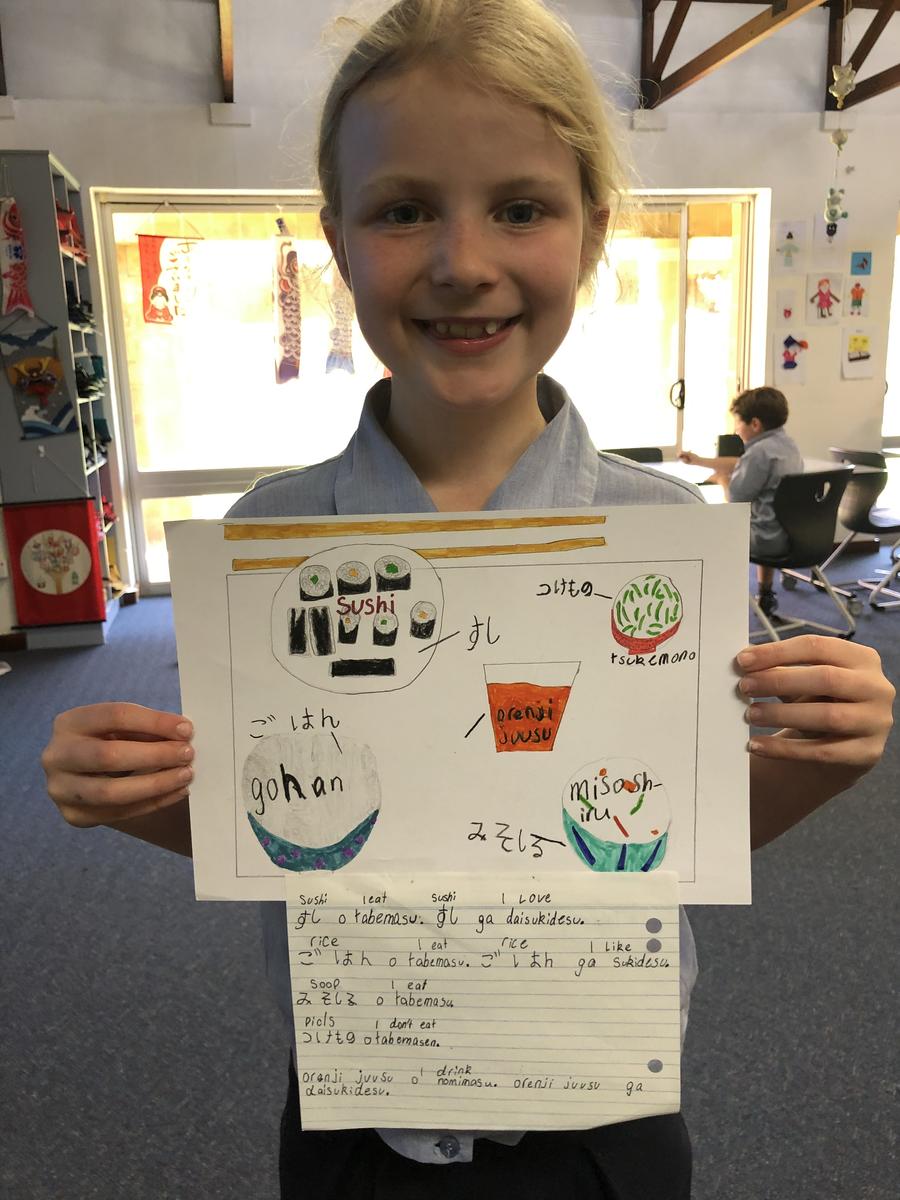 Sushi
すし
つけもの
tsukemono
orenji
juusu
ごはん
gohan
misosh-
iru
みそしる
Sushi I eat sushi I LOVE
すし o tabemasu. すし ga daisukidesu.
rice I eat rice I like
ごはん o tabemasu. ごはん ga sukidesu.
soop I eat
みそしる o tabemasu
picls I don't eat
つけもの o tabemasen.
I drink
orenji juusu o nomimasu. orenji juusu ga
daisukidesu.